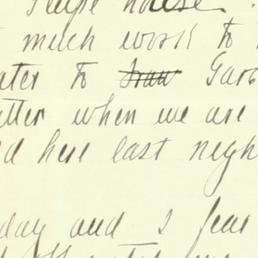 house.
much work to
ater to Iran Gar
tter when we are
d here last nigh
day and I fear